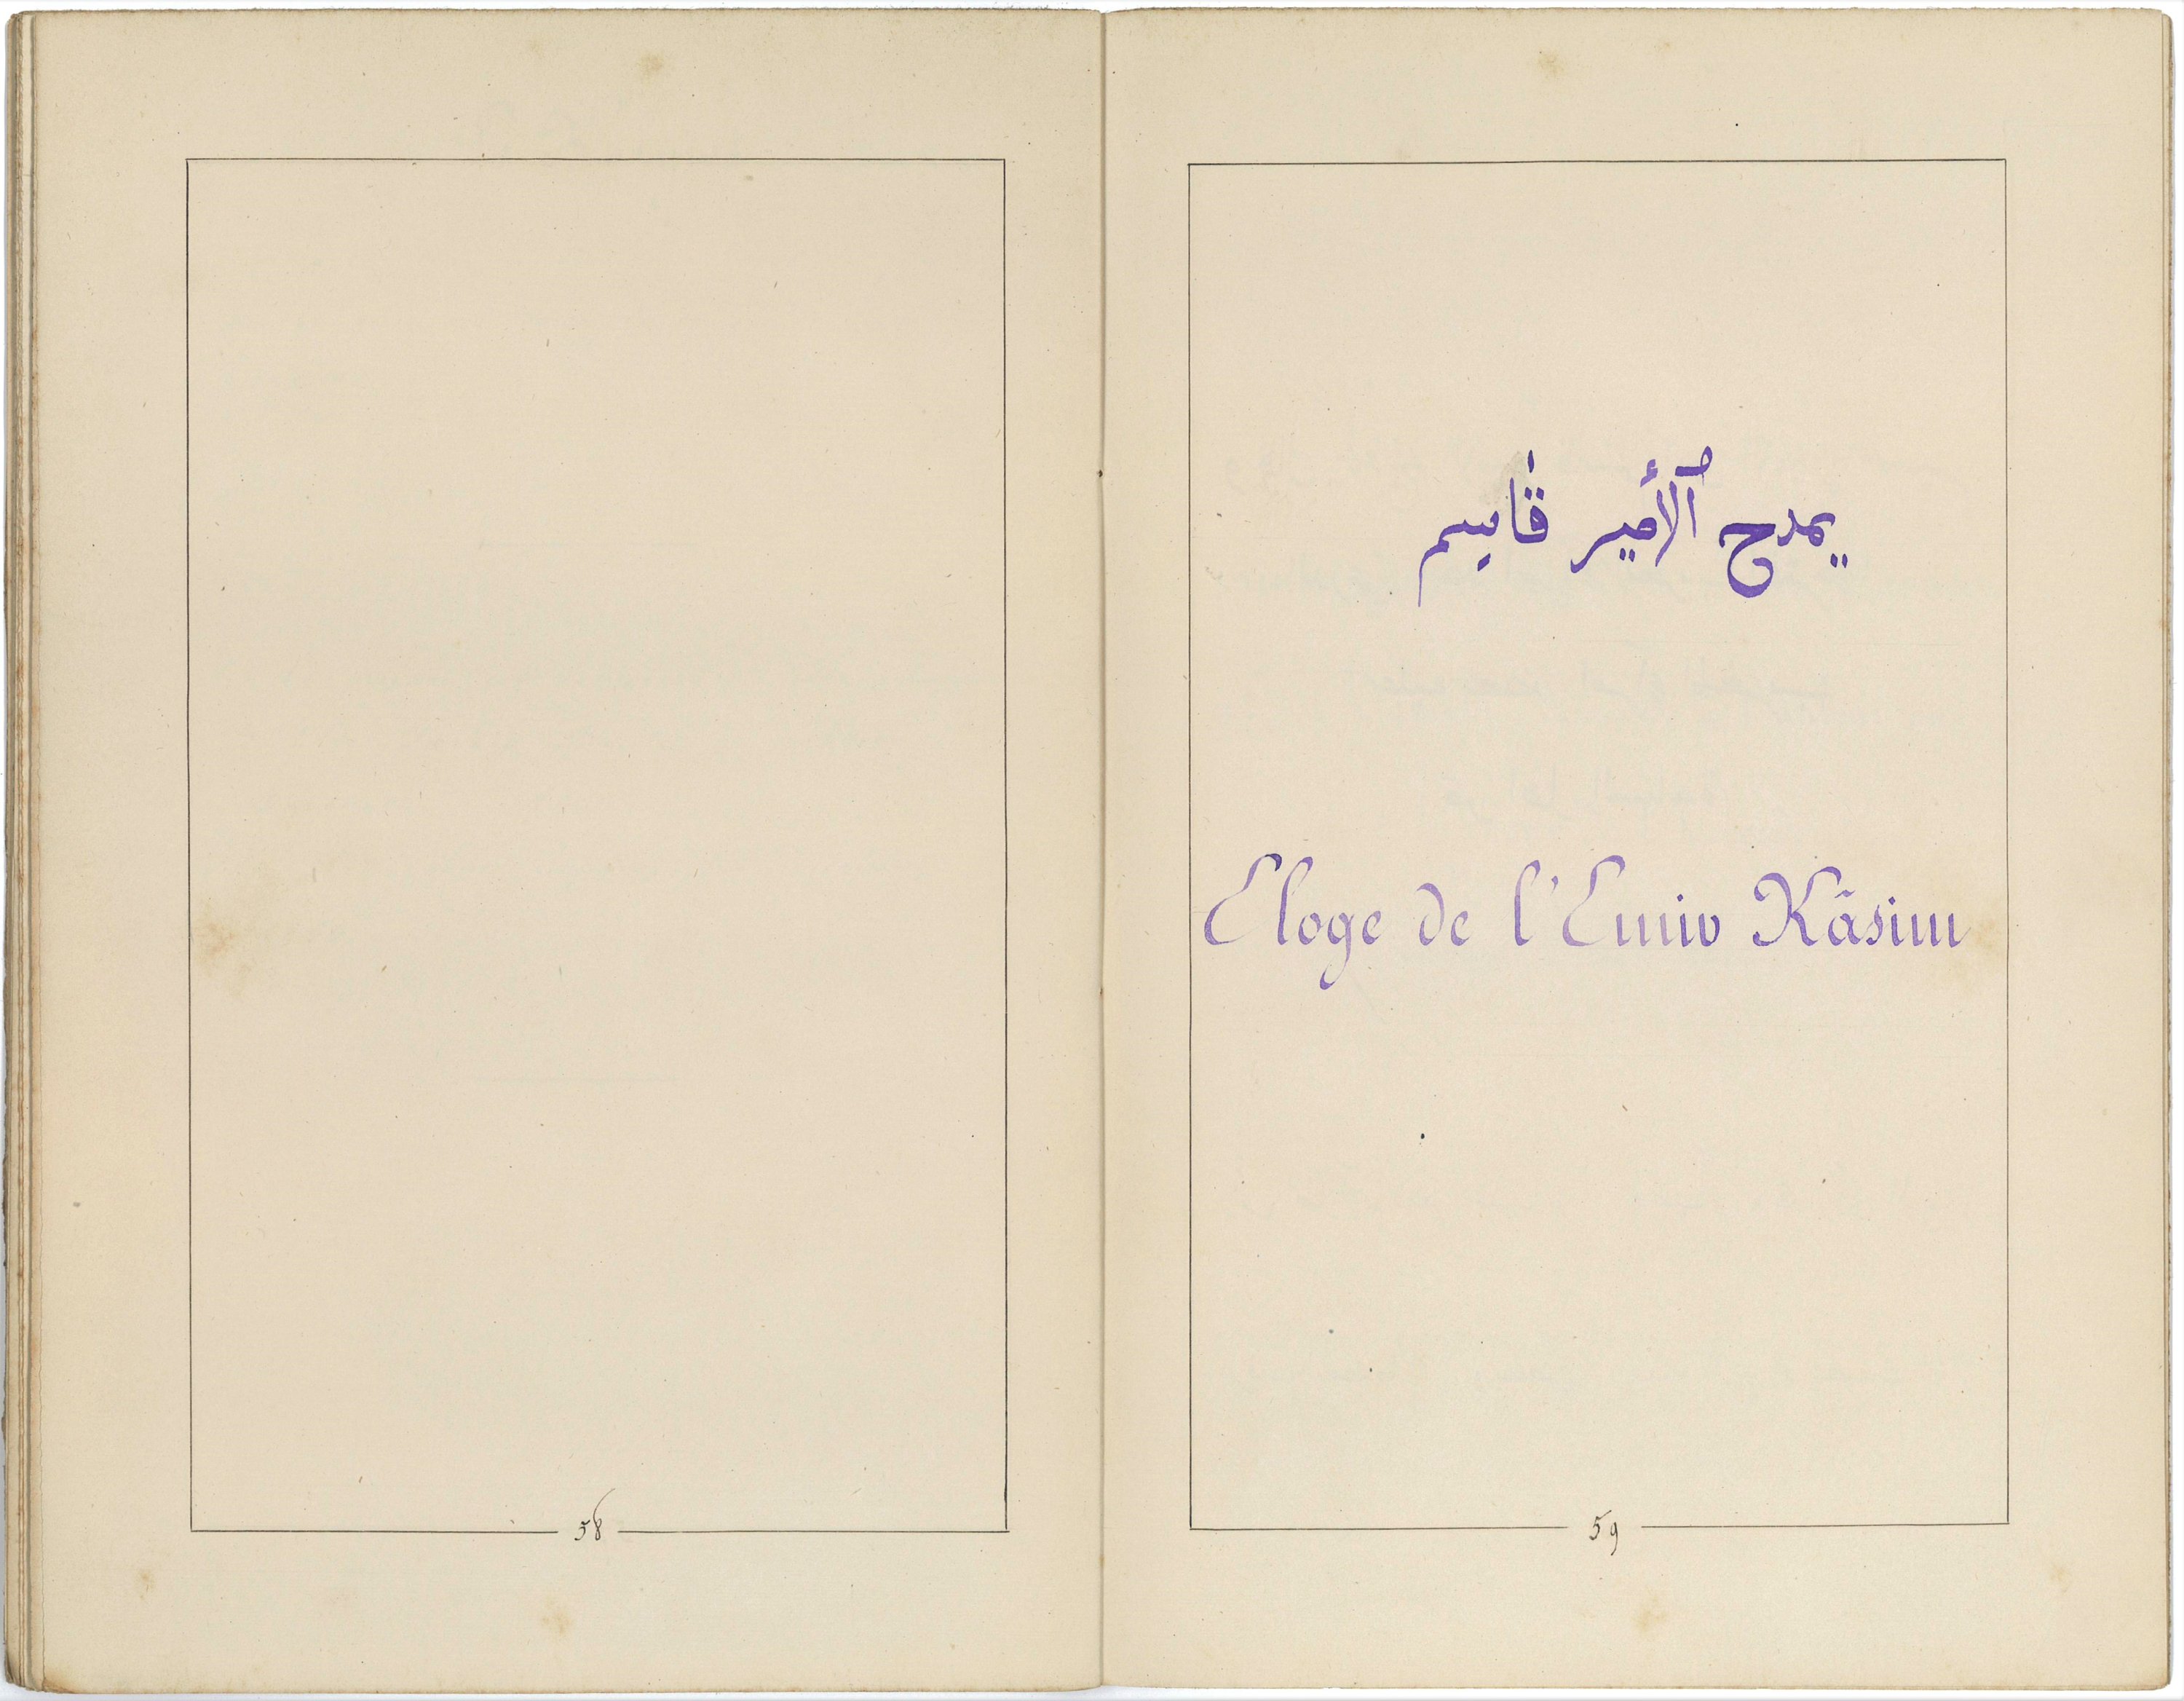 58
يمدح ٱلأمير قاسِم
Eloge de l'Emir Kâsim
59